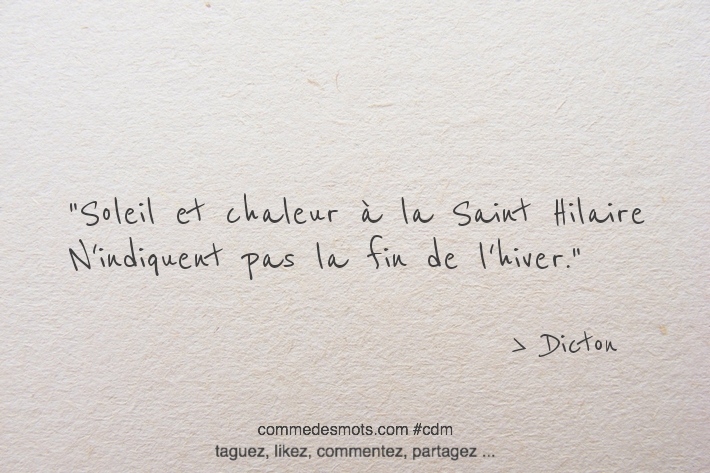 "Soleil et chaleur à la Saint Hilaire
N'indiquent pas la fin de l'hiver."
> Dicton
commedesmots.com #cdm
taguez, likez, commentez, partagez ...